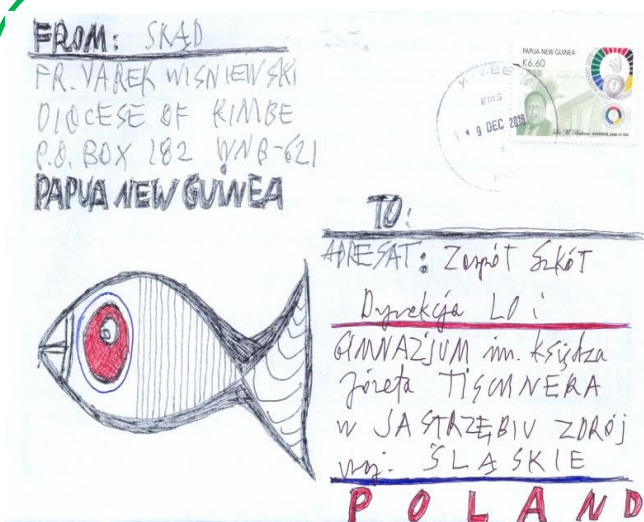 FROM: SKĄD
FR. YAREK WISNIEWSKI
DIOCESE OF KIMBE
P.O. BOX 182 WNB-621
PAPUA NEW GUINEA
PAPUA NEW GUINEA
K6.60
EMS
9 DEC 2016
TO:
ADRESAT: Zespół Szkół
Dyrekcja LO i
GIMNAZJUM im. księdza
Józefa TISCHNERA
w JASTRZĘBIU ZDRÓJ
woj. ŚLĄSKIE
POLAND